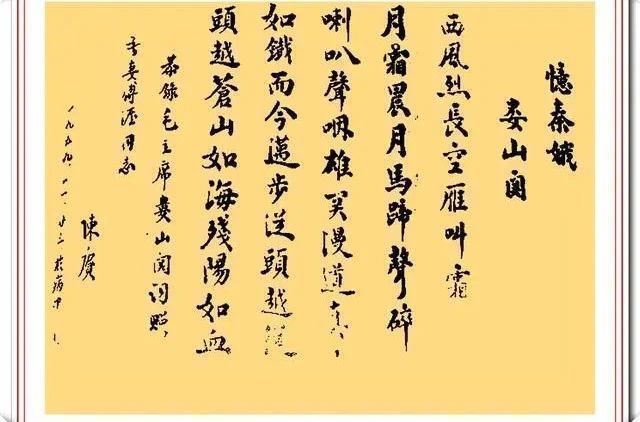 憶秦娥
娄山関
西風烈長空雁叫霜
月霜晨月馬蹄聲碎
喇叭聲咽雄関漫道真
如鐵而今邁步從頭越從
頭越蒼山如海殘陽如血
恭錄毛主席婁山関詞贈
吾妻傅涯同志
陳賡
一九五九、十一、廿三於病中